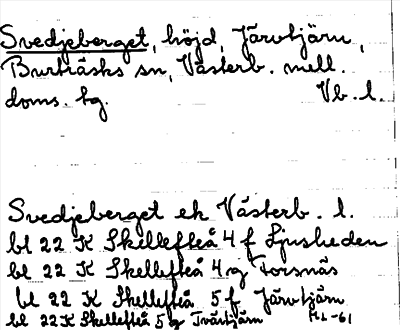 Svedjeberget, höjd, Järvtjärn,
Burträsks sn, Västerb. mell.
doms. tg. Vb. l.
Svedjeberget ek Västerb. l.
bl 22 K Skellefteå 4 f Ljusheden
bl 22 K Skellefteå 4 g Forsnäs
bl 22 K Skellefteå 5 f Järvtjärn
bl 22 K Skellefteå 5 g Tvärtjärn -61